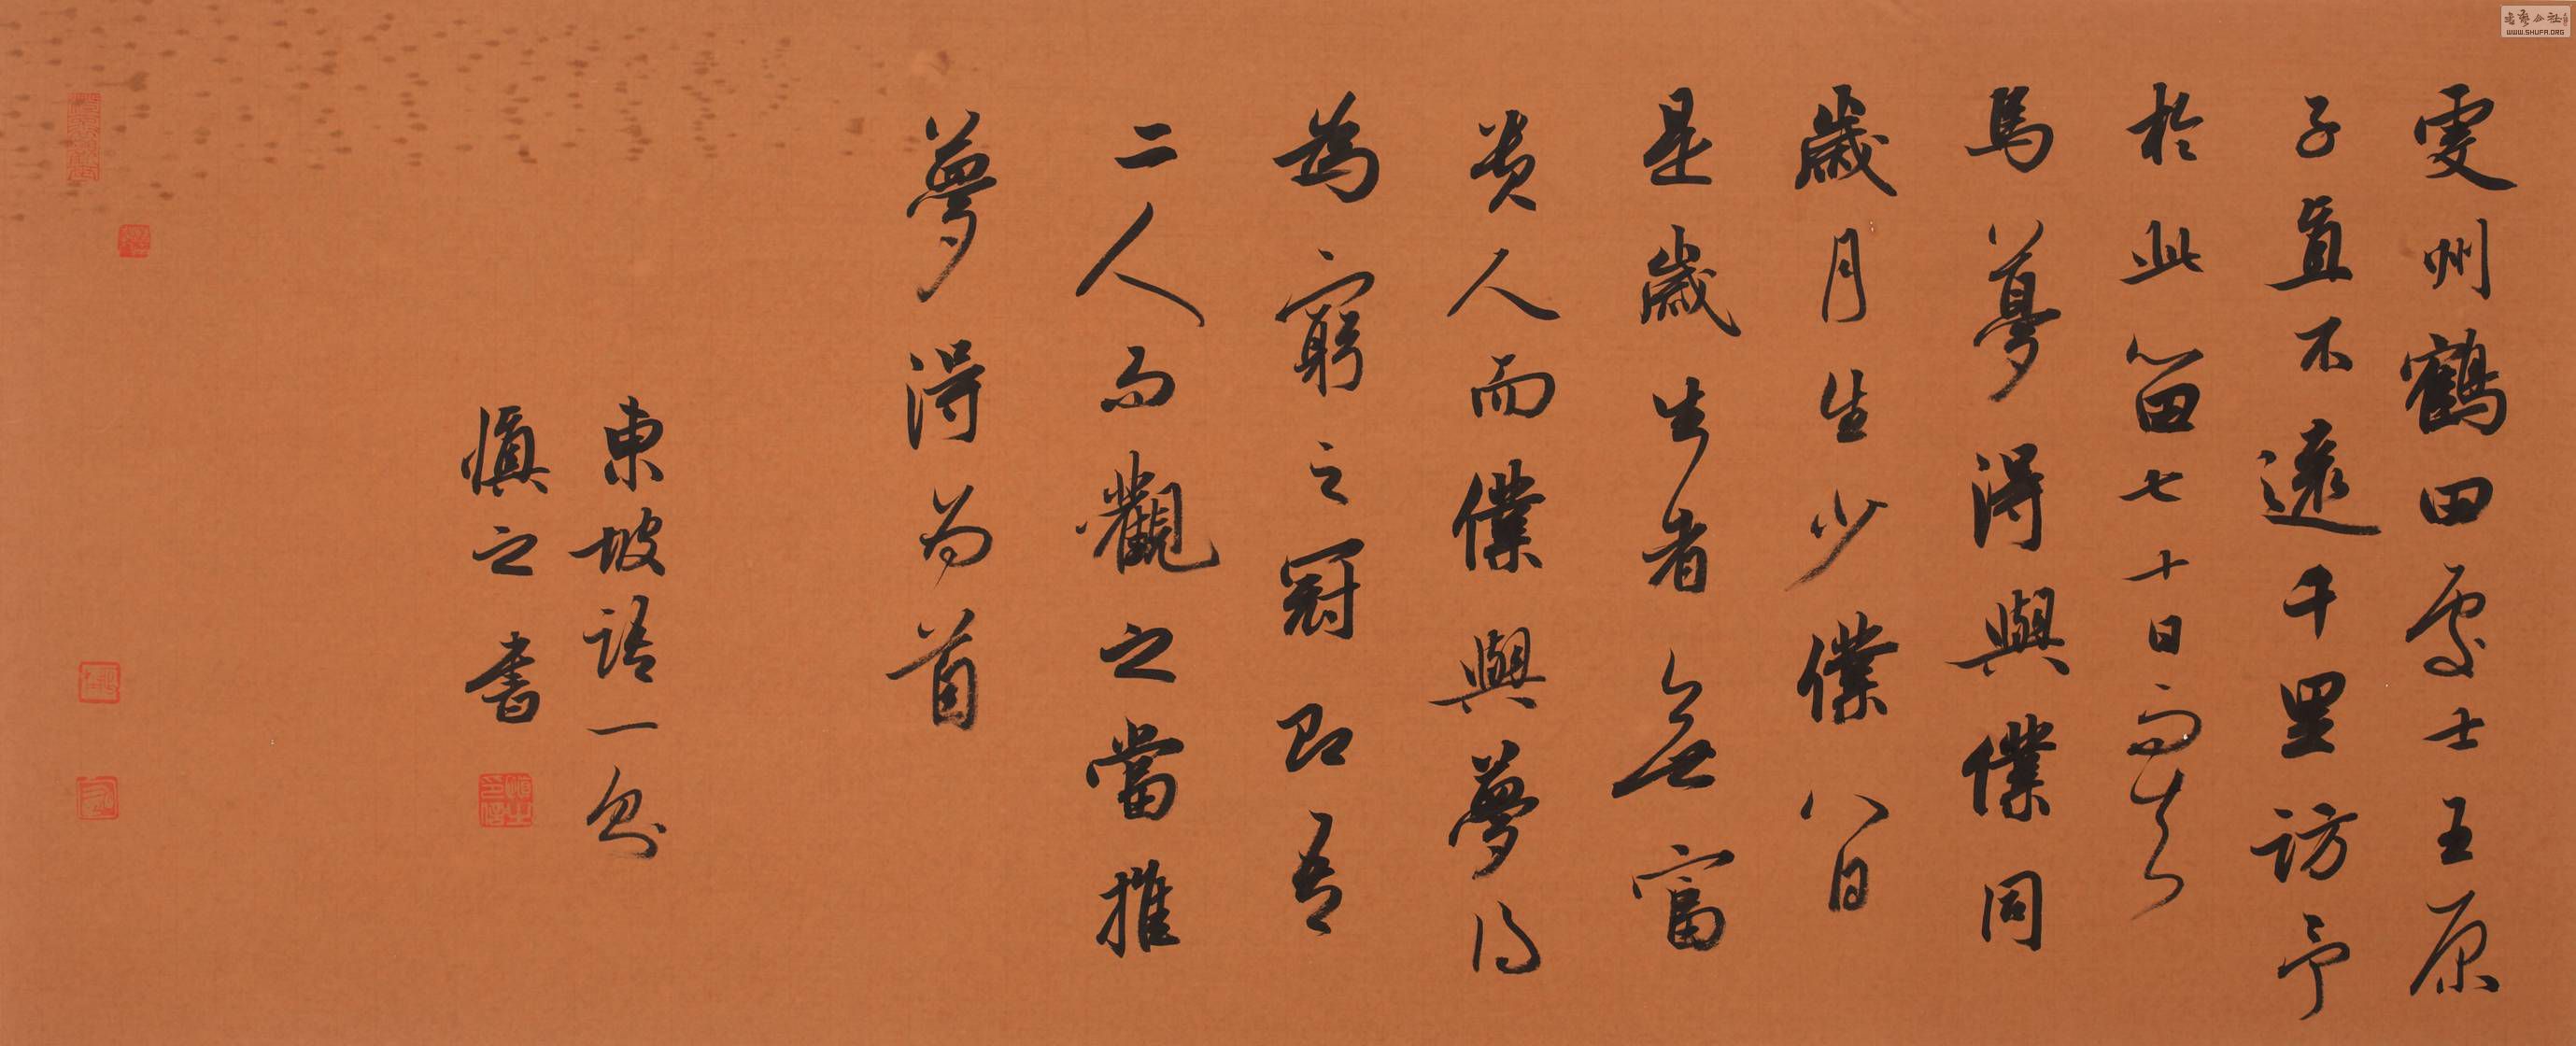 雯州鶴田處士王原
子直不遠千里訪予
於此留七十日而去
馬夢得與僕同
歲月生少僕八日
是歲生者無富
貴人而僕與夢得
為窮之冠即吾
二人而觀之當推
夢得為首
東坡語一則
慎之書
WWW.SHUFA.ORG